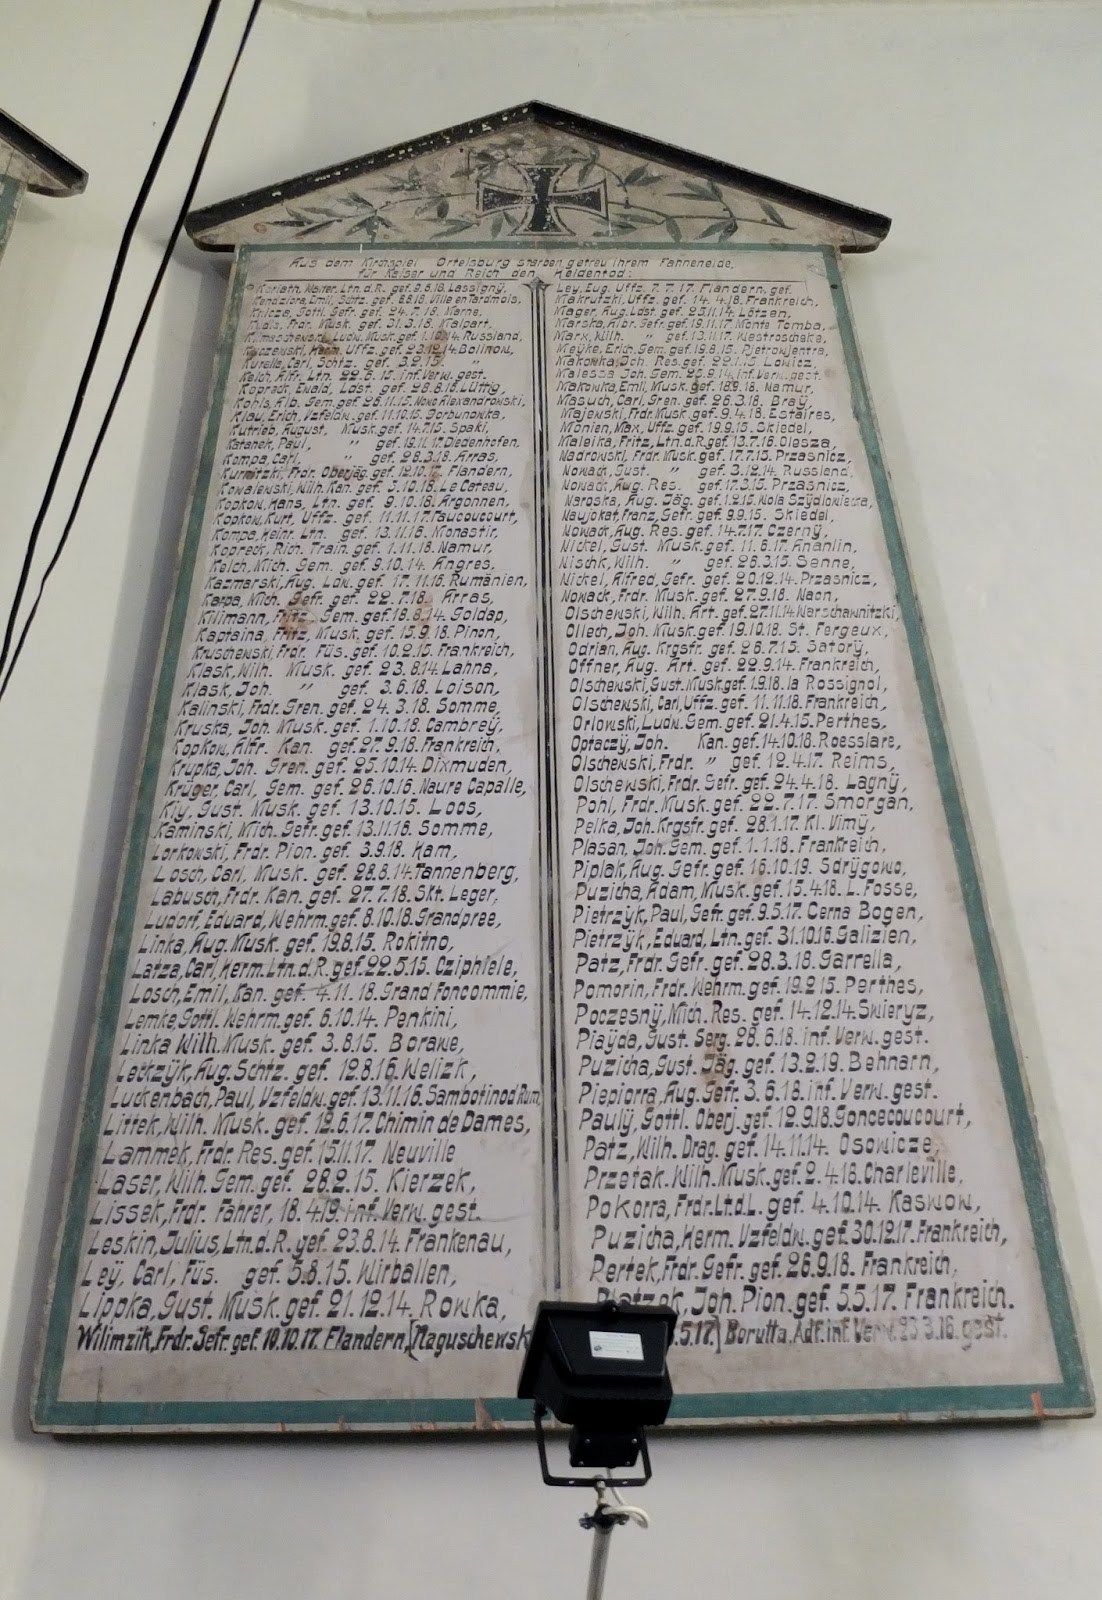 Aus dem Kirchspiel Ortelsburg starben getreu ihrem Fahneneide,
für Kaiser und Reich den Heldentod:
Korlath, Walter, Ltn.d.R. gef. 9.6.18. Lassigny,
Kendziora, Emil, Schtz. gef. 8.8.18. Ville en Tardnois,
Gottl. Gefr. gef. 24.7.18. Marne,
Kudla, Frdr. Musk. gef. 31.3.18. Malpart,
Ludw. Musk. gef. 1.10.14. Russland,
Herm. Uffz. gef. 23.12.14. Bolimow,
Kurella, Carl, Schtz. gef. 3.2.15. "
Kelch, Alfr. Ltn. 22.8.15. inf. Verw. gest.
Kopreck, Ewald, Ldst. gef. 28.8.15. Lüttig,
Kohls, Alb. Gem. gef. 26.11.15. Nowo Alexandrowski,
Klau, Erich, Vzfeldw. gef. 11.10.15. Gorbunowka,
Kutrieb, August, Musk. gef. 14.7.15. Spaki,
Katanek, Paul, " gef. 19.11.17. Diedenhofen,
Kompa, Carl, " gef. 28.3.18. Arras,
Kurnitzki, Frdr. Oberjäg. gef. 12.10.17. Flandern,
Kowalewski, Wilh. Kan. gef. 3.10.18. Le Cateau,
Kopkow, Hans, Ltn. gef. 9.10.18. Argonnen,
Kopkow, Kurt, Uffz. gef. 11.11.17. Faucoucourt,
Kompa, Heinr. Ltn. gef. 13.11.16. Monastir,
Kopreck, Rich. Train. gef. 1.11.18. Namur,
Kelch, Mich. Gem. gef. 9.10.14. Angres,
Kazmarski, Aug. Ldw. gef. 17.11.16. Rumänien,
Karpa, Mich. Gefr. gef. 22.7.18. Arras,
Kilimann, Fritz, Gem. gef. 18.8.14. Goldap,
Kaptaina, Fritz, Musk. gef. 15.9.18. Pinon,
Kruschenski, Frdr. Füs. gef. 10.2.15. Frankreich,
Klask, Wilh. Musk. gef. 23.8.14. Lahna,
Klask, Joh. " gef. 3.6.18. Loison,
Kalinski, Frdr. Gren. gef. 24.3.18. Somme,
Kruska, Joh. Musk. gef. 1.10.18. Cambreÿ,
Kopkow, Alfr. Kan. gef. 27.9.18. Frankreich,
Krupka, Joh. Gren. gef. 25.10.14. Dixmuden,
Krüger, Carl, Gem. gef. 26.10.16. Naure Capalle,
Kiy, Gust. Musk. gef. 13.10.15. Loos,
Kaminski, Mich. Gefr. gef. 13.11.16. Somme,
Lorkowski, Frdr. Pion. gef. 3.9.18. Ham,
Losch, Carl, Musk. gef. 28.8.14. Tannenberg,
Labusch, Frdr. Kan. gef. 27.7.18. Skt. Leger,
Ludorf, Eduard, Wehrm. gef. 8.10.18. Grandpree,
Linka, Aug. Musk. gef. 19.8.15. Rokitno,
Latza, Carl, Herm. Ltn.d.R. gef. 22.5.15. Cziphiele,
Losch, Emil, Kan. gef. 4.11.18. Grand Foncommie,
Lemke, Gottl. Wehrm. gef. 6.10.14. Penkini,
Linka Wilh. Musk. gef. 3.8.15. Borawe,
Letkzÿk, Aug. Schtz. gef. 12.8.16. Welizk,
Luckenbach, Paul, Vzfeldw. gef. 13.11.16. Sambotinod Rum,
Littek, Wilh. Musk. gef. 12.6.17. Chimin de Dames,
Lammek, Frdr. Res. gef. 15.11.17. Neuville
Laser, Wilh. Gem. gef. 28.2.15. Kierzek,
Lissek, Frdr. Fahrer, 18.4.19. inf. Verw. gest.
Leskin, Julius, Ltn.d.R. gef. 23.8.14. Frankenau,
Leÿ, Carl, Füs. gef. 5.8.15. Wirballen,
Lippka, Gust. Musk. gef. 21.12.14. Rowka,
Ley, Eug. Uffz. 7.7.17. Flandern, gef.
Makrutzki, Uffz. gef. 14.4.18. Frankreich,
Mager, Aug. Ldst. gef. 25.11.14. Lötzen,
Marska, Albr. Gefr. gef. 19.11.17. Monte Tomba,
Marx, Wilh. " gef. 13.11.17. Westroscheke,
Meÿke, Erich, Gem. gef. 19.8.15. Pjetrowjentra,
Makowka, Joh. Res. gef. 22.1.15. Lowicz,
Malessa Joh. Gem. 25.9.14. inf. Verw. gest.
Makowka, Emil, Musk. gef. 18.9.18. Namur,
Masuch, Carl, Gren. gef. 26.3.18. Braÿ,
Majewski, Frdr. Musk. gef. 9.4.18. Estaires,
Monien, Max, Uffz. gef. 19.9.15. Skiedel,
Maleika, Fritz, Ltn.d.R. gef. 13.7.16. Olesza,
Nadrowski, Frdr. Musk. gef. 17.7.15. Przasnicz,
Nowack, Gust. " gef. 3.12.14. Russland,
Nowack, Aug. Res. gef. 17.3.15. Przasnicz,
Naroska, Aug. Jäg. gef. 1.2.15. Wola Szÿdlowiecka,
Naujokat, Franz, Gefr. gef. 9.9.15. Skiedel,
Nowack, Aug. Res. gef. 14.7.17. Czernÿ,
Nickel, Gust. Musk. gef. 11.6.17. Ananlin,
Nischk, Wilh. " gef. 26.3.15. Senne,
Nickel, Alfred, Gefr. gef. 20.12.14. Przasnicz,
Nowack, Frdr. Musk. gef. 27.9.18. Naon,
Olschewski, Wilh. Art. gef. 27.11.14. Warschawnitzki,
Ollech, Joh. Musk. gef. 19.10.18. St. Fergeux,
Odrian, Aug. Krgsfr. gef. 26.7.15. Satorÿ,
Offner, Aug. Art. gef. 22.9.14. Frankreich,
Olschewski, Gust. Musk. gef. 1.9.18. la Rossignol,
Olschewski, Carl, Uffz. gef. 11.11.18. Frankreich,
Orlowski, Ludw. Gem. gef. 21.4.15. Perthes,
Optaczÿ, Joh. Kan. gef. 14.10.18. Roesslare,
Olschewski, Frdr. " gef. 12.4.17. Reims,
Olschewski, Frdr. Gefr. gef. 24.4.18. Lagnÿ,
Pohl, Frdr. Musk. gef. 22.7.17. Smorgan,
Pelka, Joh. Krgsfr. gef. 28.1.17. Kl. Vimÿ,
Plasan, Joh. Gem. gef. 1.1.18. Frankreich,
Piplak, Aug. Gefr. gef. 16.10.19. Sdrÿgowo,
Puzicha, Adam, Musk. gef. 15.4.18. L. Fosse,
Pietrzÿk, Paul, Gefr. gef. 9.5.17. Cerna Bogen,
Pietrzÿk, Eduard, Ltn. gef. 31.10.16. Galizien,
Patz, Frdr. Gefr. gef. 28.3.18. Garrella,
Pomorin, Frdr. Wehrm. gef. 19.2.15. Perthes,
Poczesnÿ, Mich. Res. gef. 14.12.14. Swieryz,
Piaÿda, Gust. Serg. 28.6.18. inf. Verw. gest.
Puzicha, Gust. Jäg. gef. 13.2.19. Behnarn,
Piepiorra, Aug. Gefr. 3.6.18. inf. Verw. gest.
Paulÿ, Gottl. Oberj. gef. 12.9.18. Goncecoucourt,
Patz, Wilh. Drag. gef. 14.11.14. Osowicze,
Przetak, Wilh. Musk. gef. 2.4.18. Charleville,
Pokorra, Frdr. Lt.d.L. gef. 4.10.14. Kaswow,
Puzicha, Herm. Vzfeldw. gef. 30.12.17. Frankreich,
Pertek, Frdr. Gefr. gef. 26.9.18. Frankreich,
Joh. Pion. gef. 5.5.17. Frankreich.
Wilimzik, Frdr. Gefr. gef. 10.10.17. Flandern, [Naguschewsk .5.17.] Borutta, Adf. inf. Verw. 23.3.16. gest.